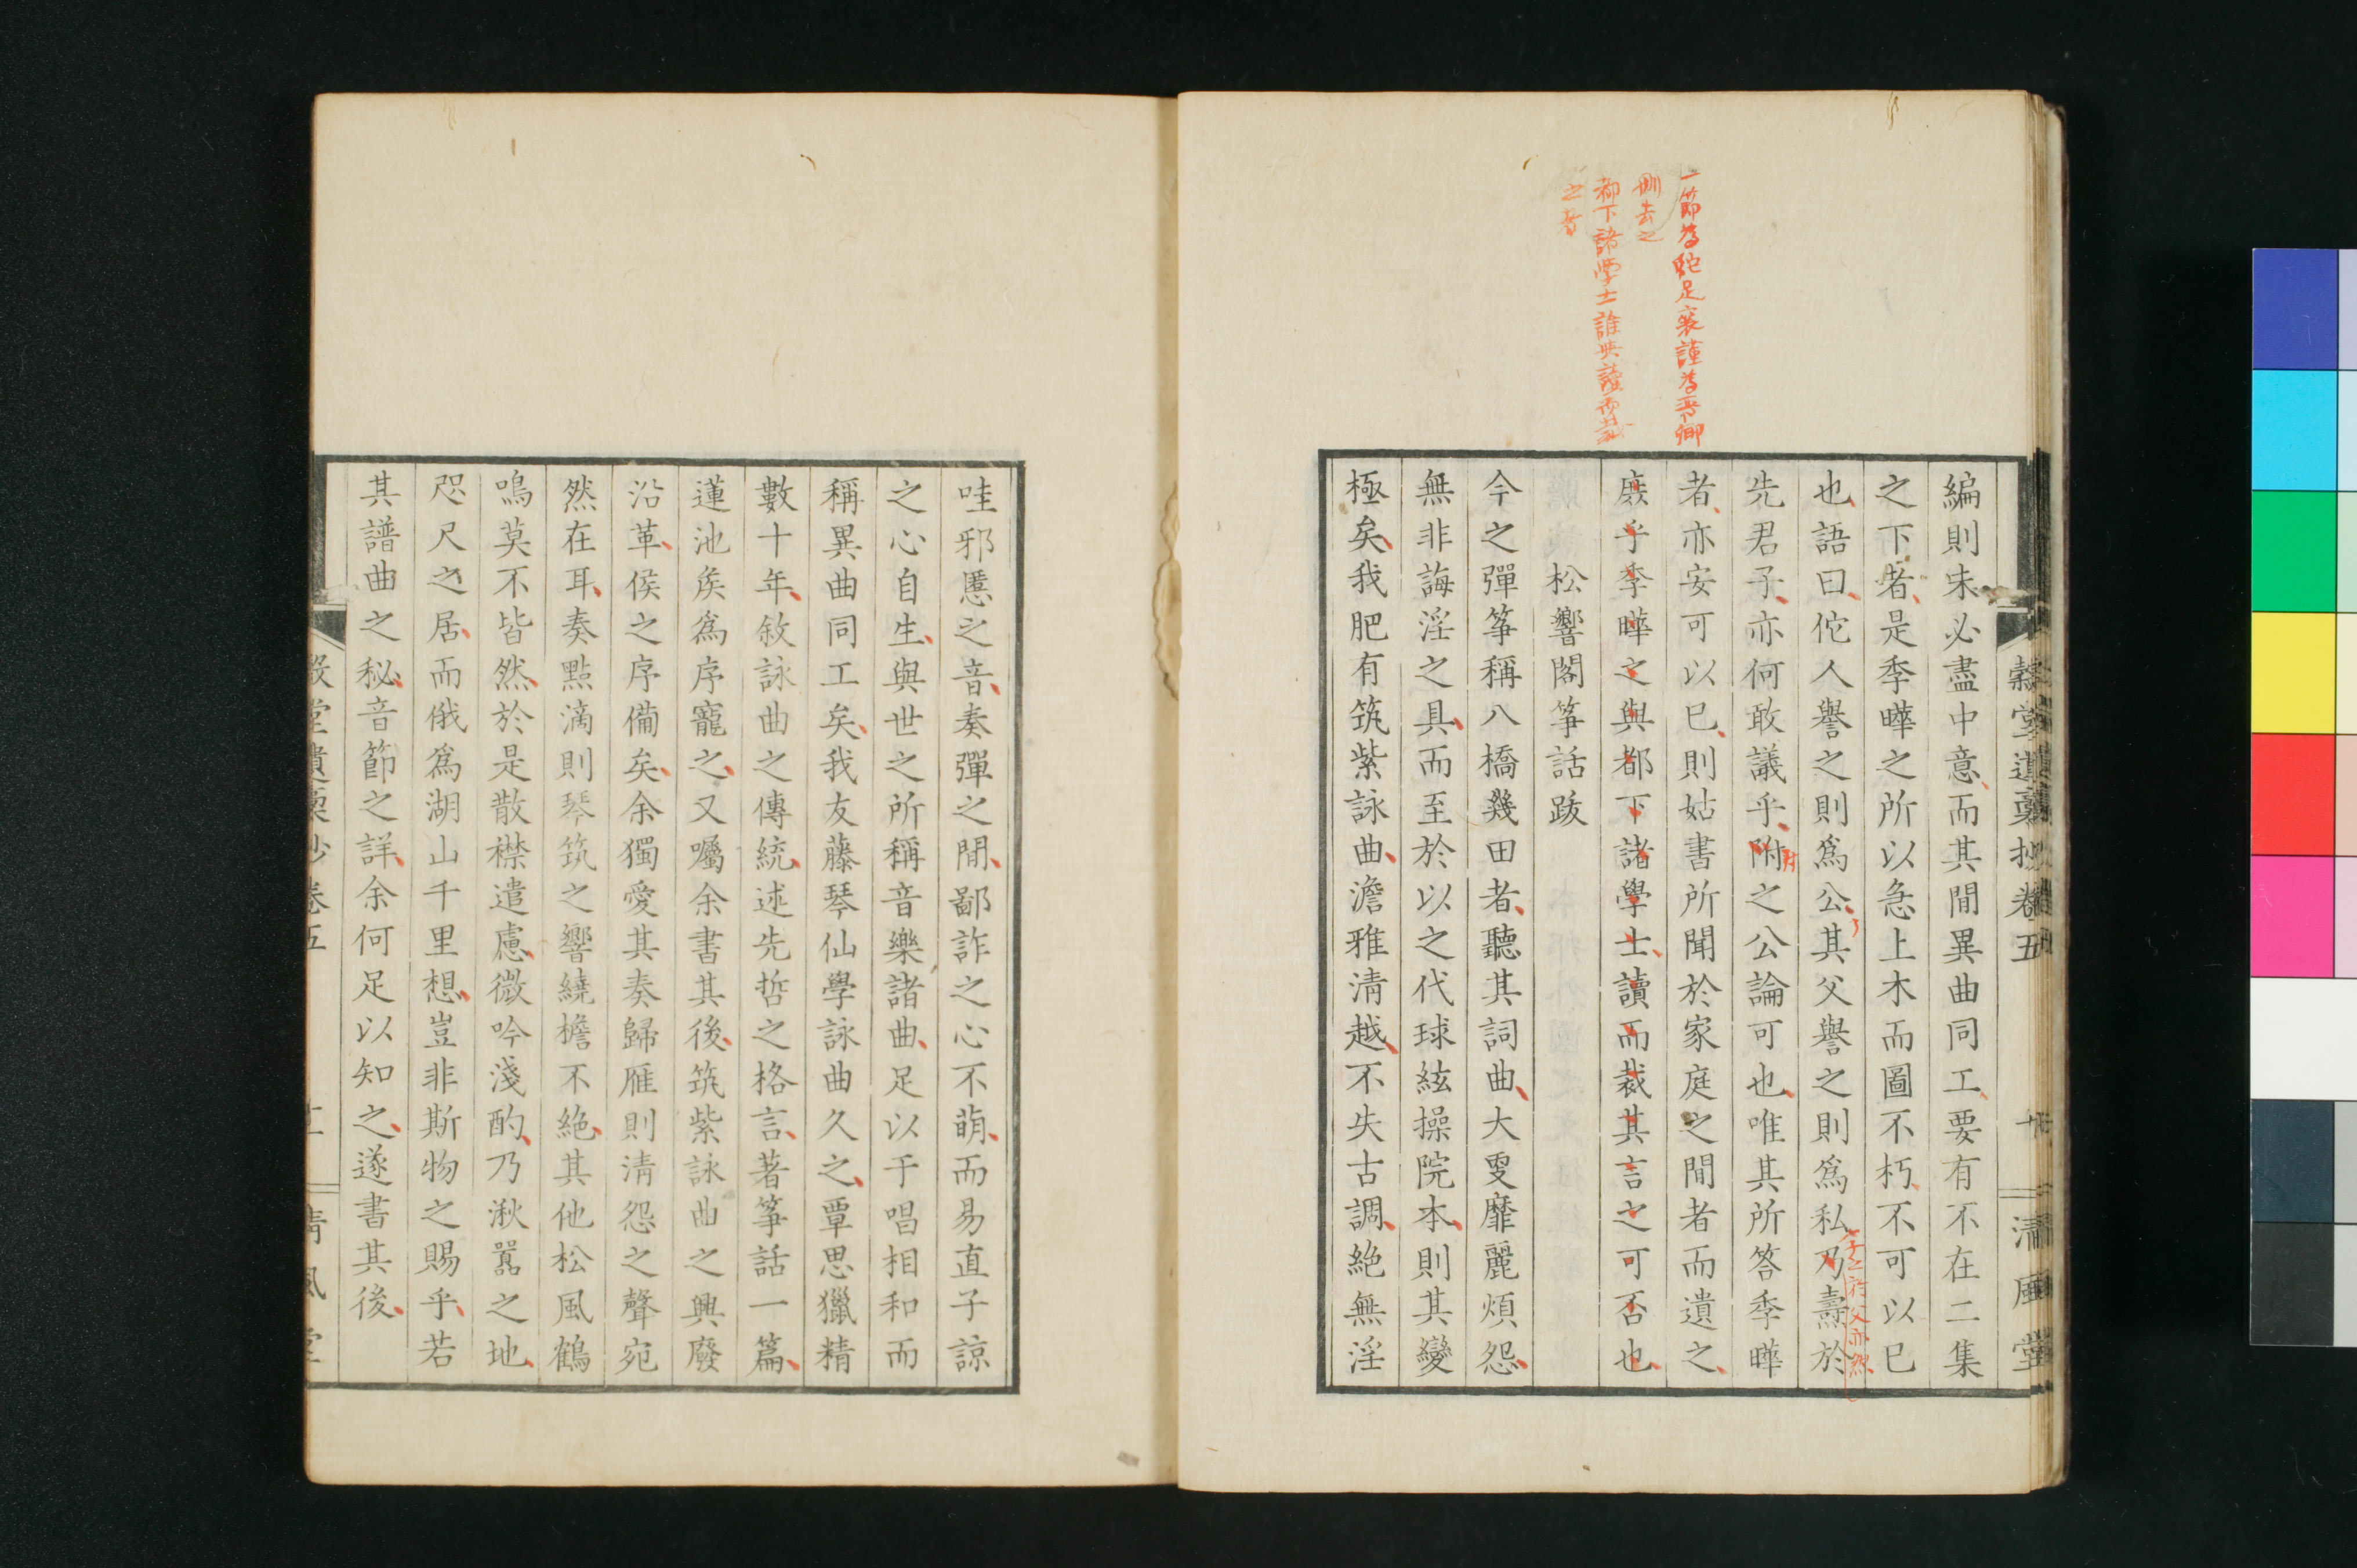 一節為蛇足裘謹為晋卿
刪去之
都下諸學士誰與讀而裁
之者
穀堂遺稾抄卷五
十
清風堂
編則未必盡中意而其間異曲同工要有不在二集
之下者是季曄之所以急上木而圖不朽不可以已
也語曰佗人譽之則爲公其父譽之則爲私乃壽於
子之於父亦然
先君子亦何敢議乎附之公論可也唯其所答季曄
者亦安可以已則姑書所聞於家庭之間者而遺之
庶乎季曄之與都下諸學士讀而裁其言之可否也
松響閣箏話跋
今之彈箏稱八橋幾田者聽其詞曲大更靡麗煩怨
無非誨淫之具而至於以之代球絃操院本則其變
極矣我肥有筑紫詠曲澹雅淸越不失古調絶無淫
哇邪慝之音奏彈之間鄙詐之心不萌而易直子諒
之心自生與世之所稱音樂諸曲足以于唱相和而
稱異曲同工矣我友藤琴仙學詠曲久之覃思獵精
數十年敘詠曲之傳統述先哲之格言著箏話一篇
蓮池矦爲序寵之又囑余書其後筑紫詠曲之興廢
沿革侯之序備矣余獨愛其奏歸雁則淸怨之聲宛
然在耳奏點滴則琴筑之響繞檐不絶其他松風鶴
鳴莫不皆然於是散襟遣慮微吟淺酌乃湫囂之地
咫尺之居而俄爲湖山千里想豈非斯物之賜乎若
其譜曲之秘音節之詳余何足以知之遂書其後
穀堂遺稾抄卷五
十一
清風堂